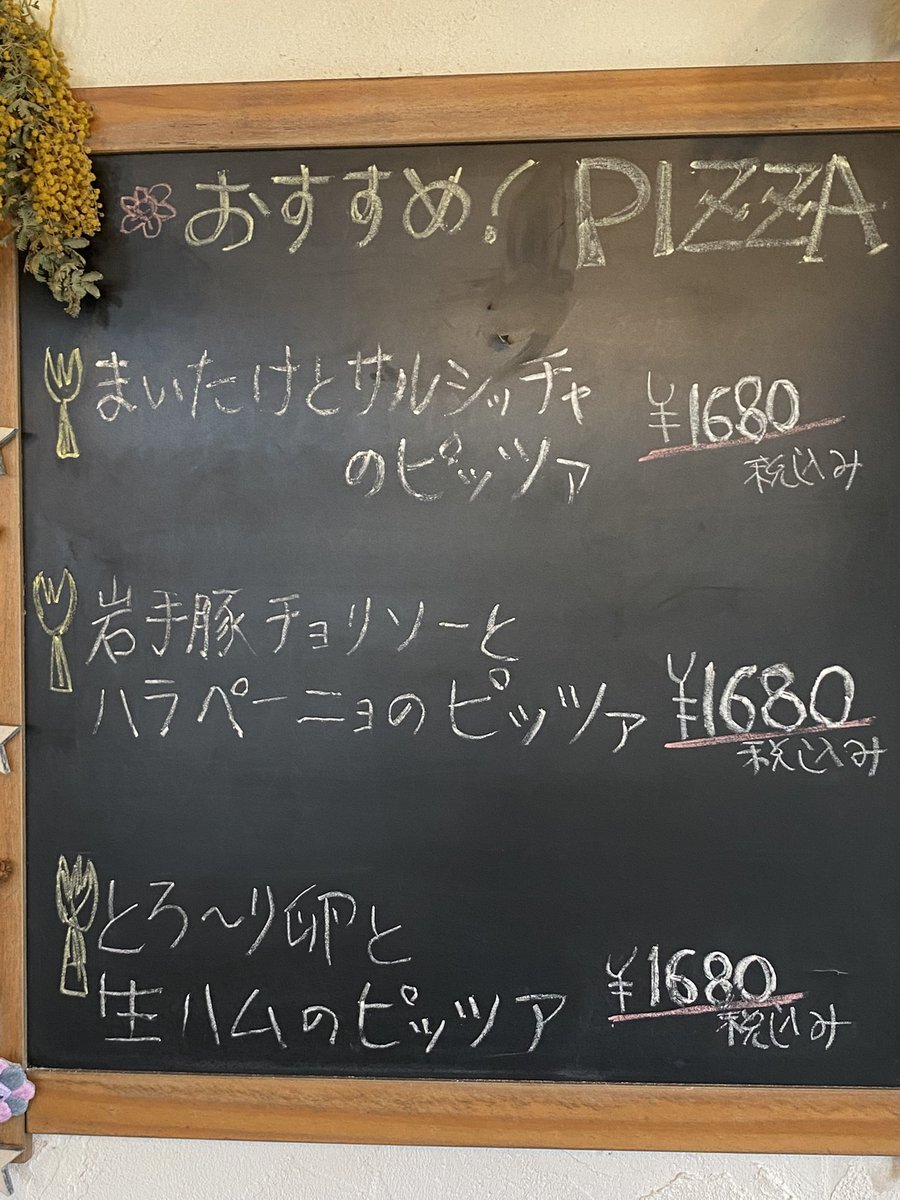 おすすめ! PIZZA
まいたけとサルシッチャ
のピッツァ ¥1680
税込み
岩手豚チョリソーと
ハラペーニョのピッツァ ¥1680
税込み
とろ〜り卵と
生ハムのピッツァ ¥1680
税込み